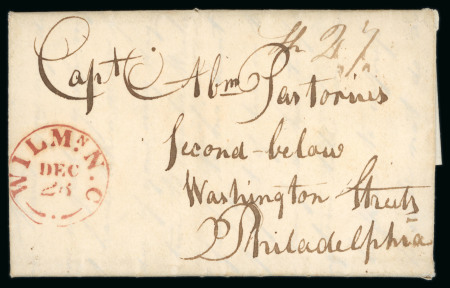 Capt. Abm Sartorius
Second below
Washington Streets
Philadelphia
WILMn. N. C
DEC
28